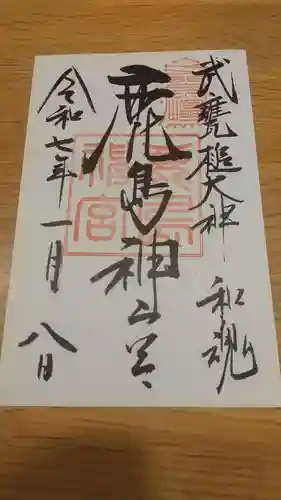 武甕槌大神 和魂
鹿島神宮
令和七年一月八日